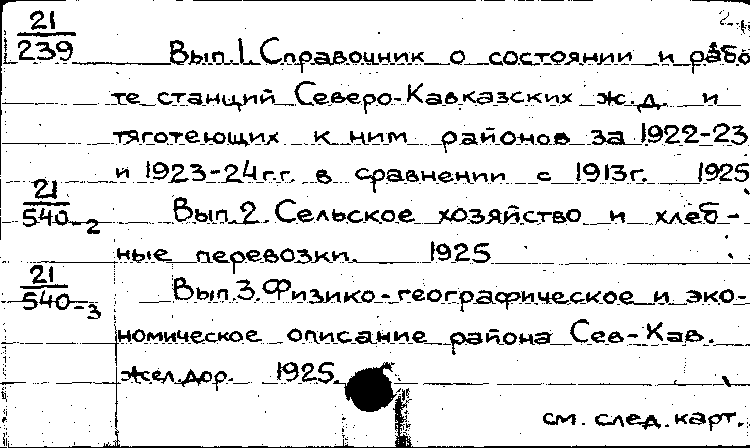 2.
21
239
Вып.1. Справочник о состоянии и рабо
те станций Северо-Кавказских ж.д. и
тяготеющих к ним районов за 1922-23
и 1923-24 г.г. в сравнении с 1913г. 1925
21
540-2
Вып.2. Сельское хозяйство и хлеб-
ные перевозки. 1925
21
540-3
Вып.3. Физико-географическое и эко-
номическое описание района Сев-Кав.
жел.дор. 1925.
см. след. карт.